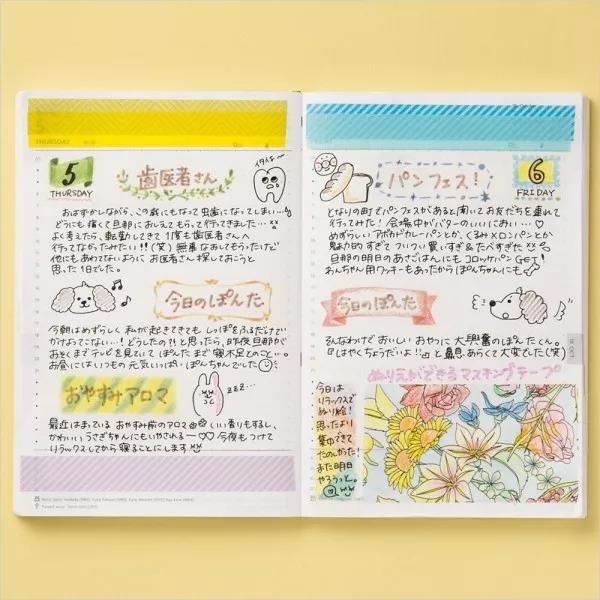 THURSDAY
5
THURSDAY
歯医者さん
イタイよ〜
おはずかしながら、この歳にもなって虫歯になってしまい…
どうにも痛くて旦那におしえてもらって行ってきました…
よく考えたら、転勤してきて1度も歯医者さんへ
行ってなかったみたい!!(笑) 無事なおしてもらったけど
他にもあわてないように お医者さん探しておこうと
思った1日でした。
今日のぽんた
今朝はめずらしく 私が起きてきても しっぽをふるだけで
かけよってこない…! どうしたの!? と思ったら、昨夜旦那が
おそくまでテレビを見ていて ぽんたまで寝不足とのこと…。
お昼にはいつもの元気いっぱいぽんちゃんでした
おやすみアロマ
zzz...
最近はまっている おやすみ前のアロマ いい香りもするし、
かわいいうさぎちゃんにもいやされるー♡♡ 今夜もつけて
リラックスしてから寝ることにします
パンフェス!
6
FRIDAY
となりの町でパンフェスがあると聞いてお友だちを連れて
行ってみた! 会場中がバターのいいにおい…♡
めずらしいアボカドカレーパンとか、くるみメロンパンとか
魅力的すぎて ついつい買いすぎ&たべすぎた
旦那の明日のあさごはんにもコロッケパンGET!
わんちゃん用クッキーもあったからぽんちゃんにも
今日のぽんた
そんなわけで おいしいおやつに 大興奮のぽんたくん。
『はやくちょうだいよ!!』と鼻息あらくて大変でした(笑)
ぬりえができるマスキングテープ
今日は
リラックスで
ぬり絵!
思ったより
集中できて
たのしかった!
また明日
やろうっと。